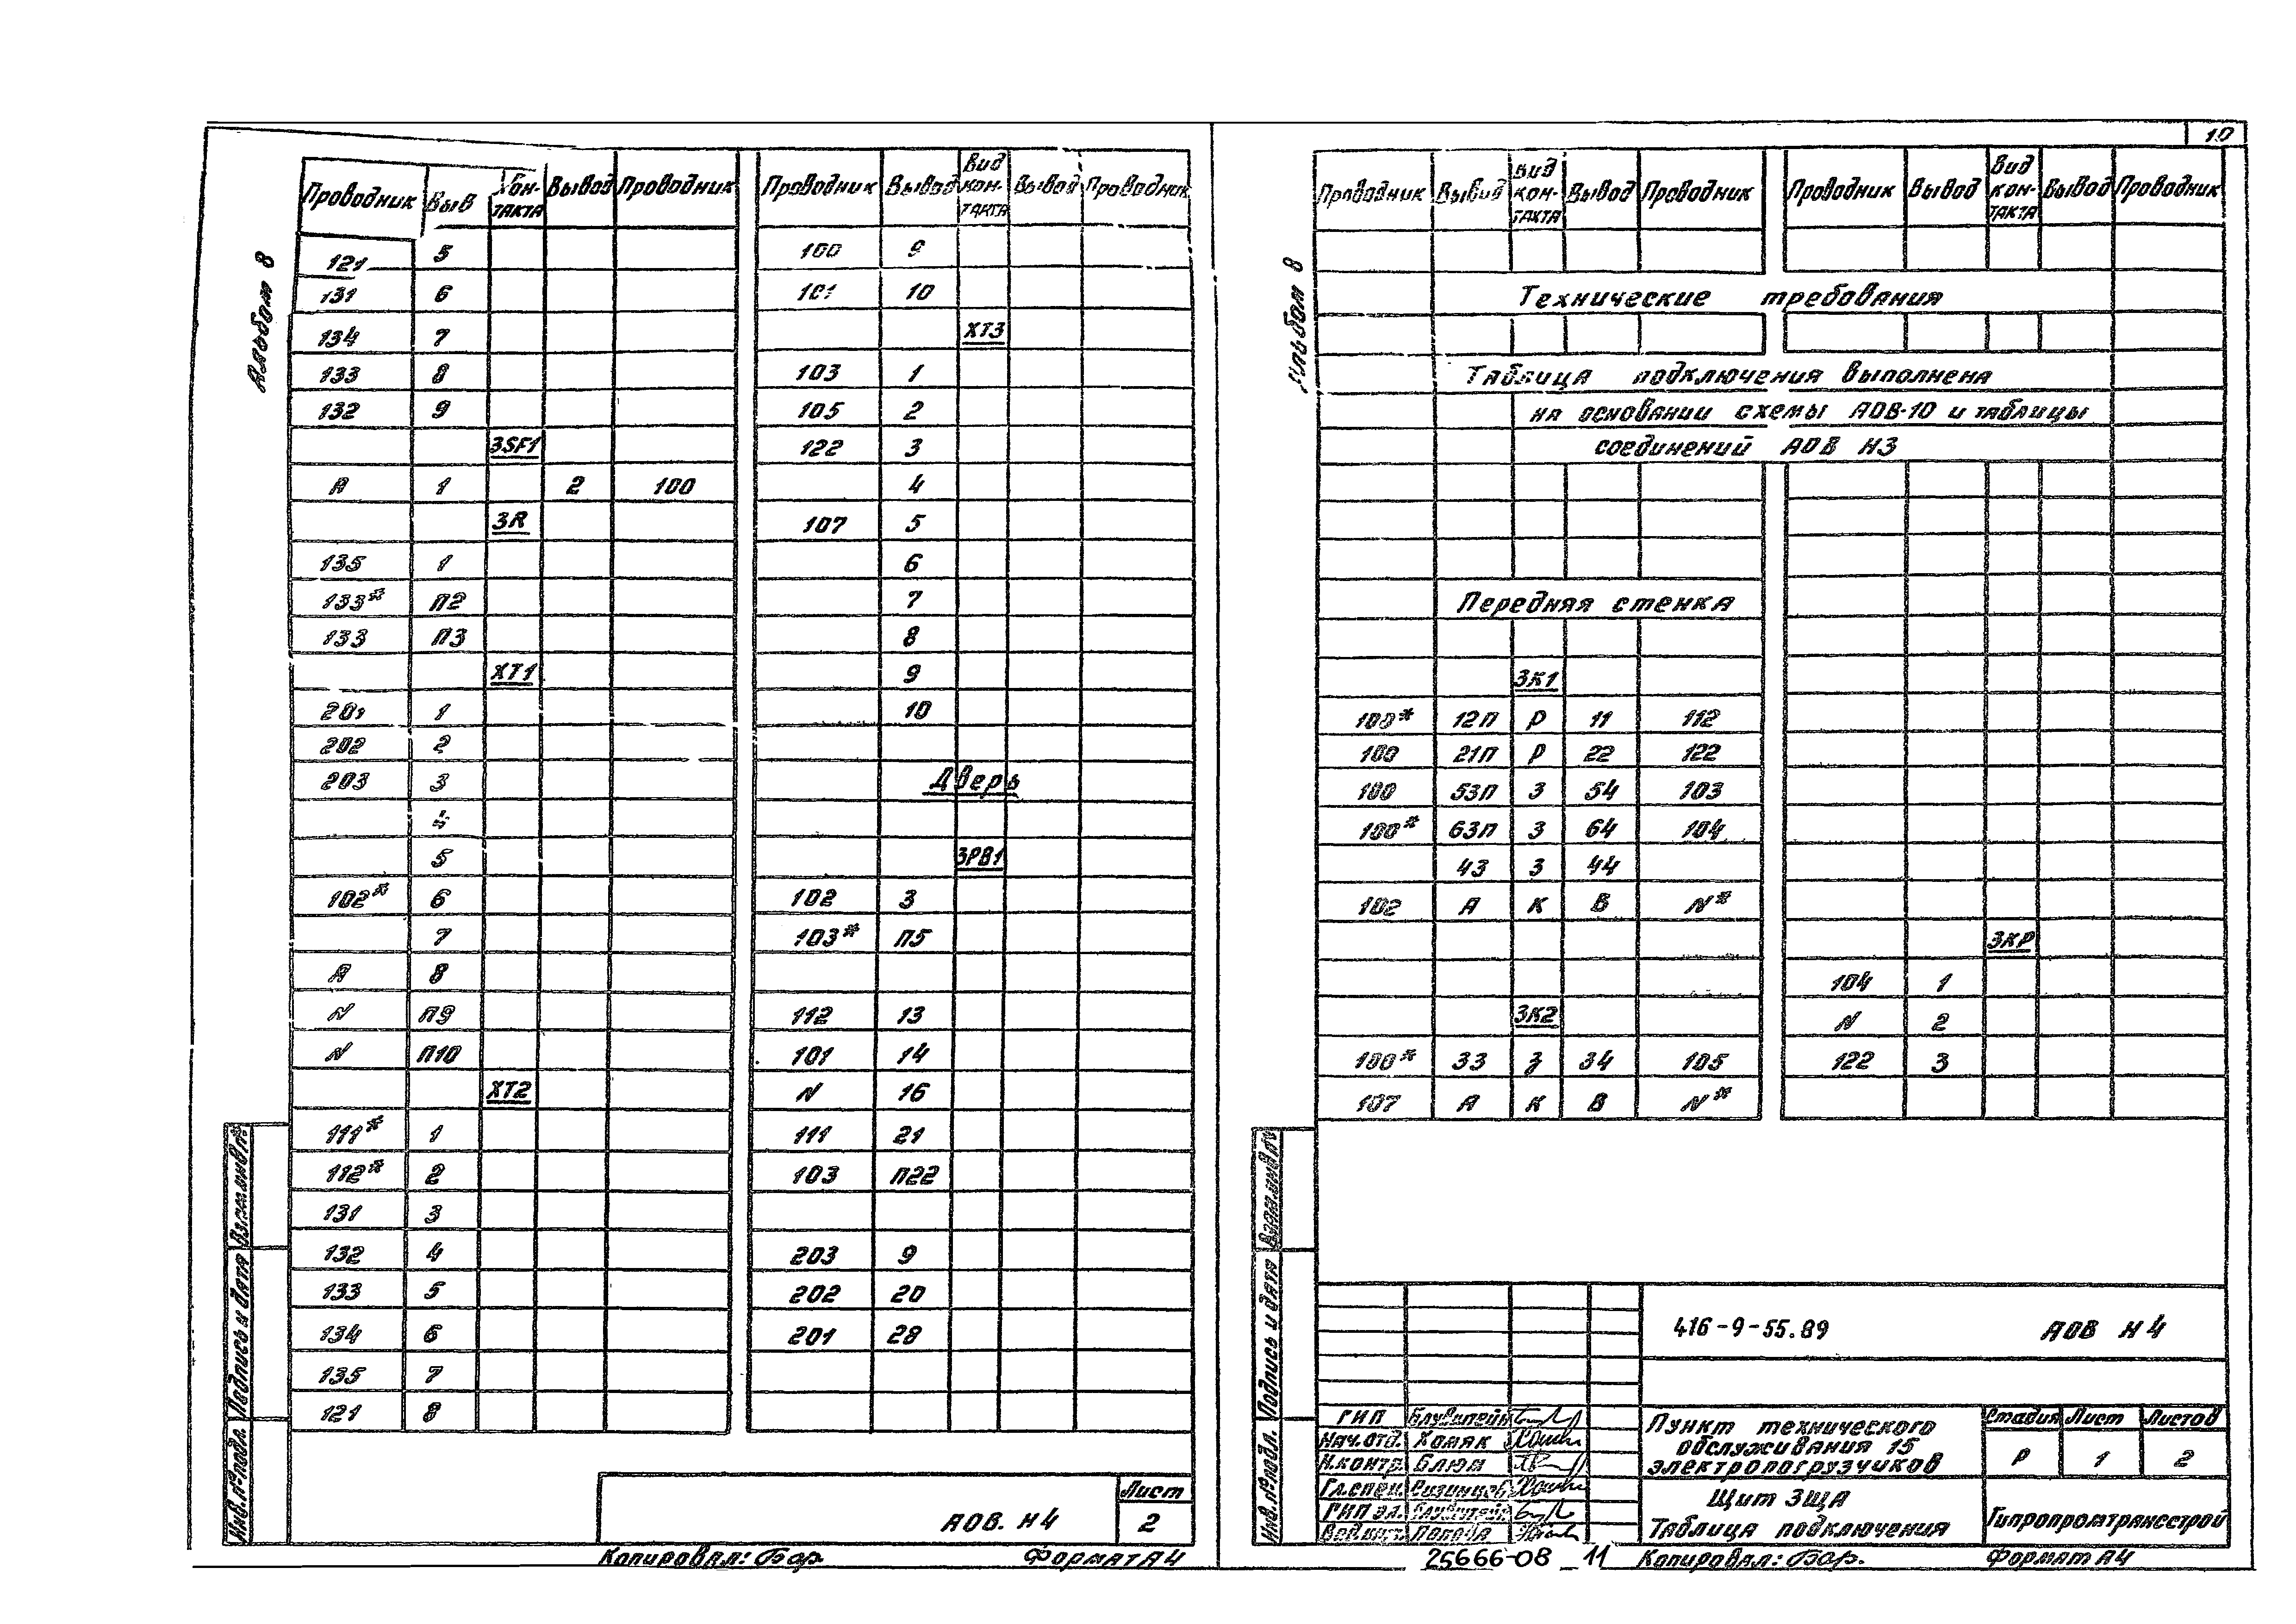 10
Альбом 8
Проводник Выв Кон-такта Вывод Проводник
121 5
131 6
134 7
133 8
132 9
3SF1
А 1 2 100
3R
135 1
133* П2
133 П3
XT1
201 1
202 2
203 3
4
5
102* 6
7
А 8
N П9
N П10
XT2
111* 1
112* 2
131 3
132 4
133 5
134 6
135 7
121 8
Проводник Вывод Вид кон-такта Вывод Проводник
100 9
101 10
XT3
103 1
105 2
122 3
4
107 5
6
7
8
9
10
Дверь
3РВ1
102 3
103* П5
112 13
101 14
N 16
111 21
103 П22
203 9
202 20
201 28
Инв.№подл. Подпись и дата Взам.инв.№
АОВ. Н4
Лист
2
Копировал: Бор. Формат А4
Альбом 8
Проводник Вывод Вид кон-такта Вывод Проводник
Проводник Вывод Вид кон-такта Вывод Проводник
Технические требования
Таблица подключения выполнена
на основании схемы АОВ-10 и таблицы
соединений АОВ Н3
Передняя стенка
3К1
100* 12П Р 11 112
100 21П Р 22 122
100 53П З 54 103
100* 63П З 64 104
43 З 44
102 А К В N*
3К2
100* 33 З 34 105
107 А К В N*
3КР
104 1
N 2
122 3
Инв.№подл. Подпись и дата Взам.инв.№
416-9-55.89 АОВ Н4
ГИП
Нач.отд. Хомяк
Н.контр. Блюм
Гл.спец.
ГИП эл.
Вед.инж. Попова
Пункт технического
обслуживания 15
электропогрузчиков
Стадия Лист Листов
Р 1 2
Щит 3ЩА
Таблица подключения
Гипропромтрансстрой
25666-08 11 Копировал: Бор. Формат А4